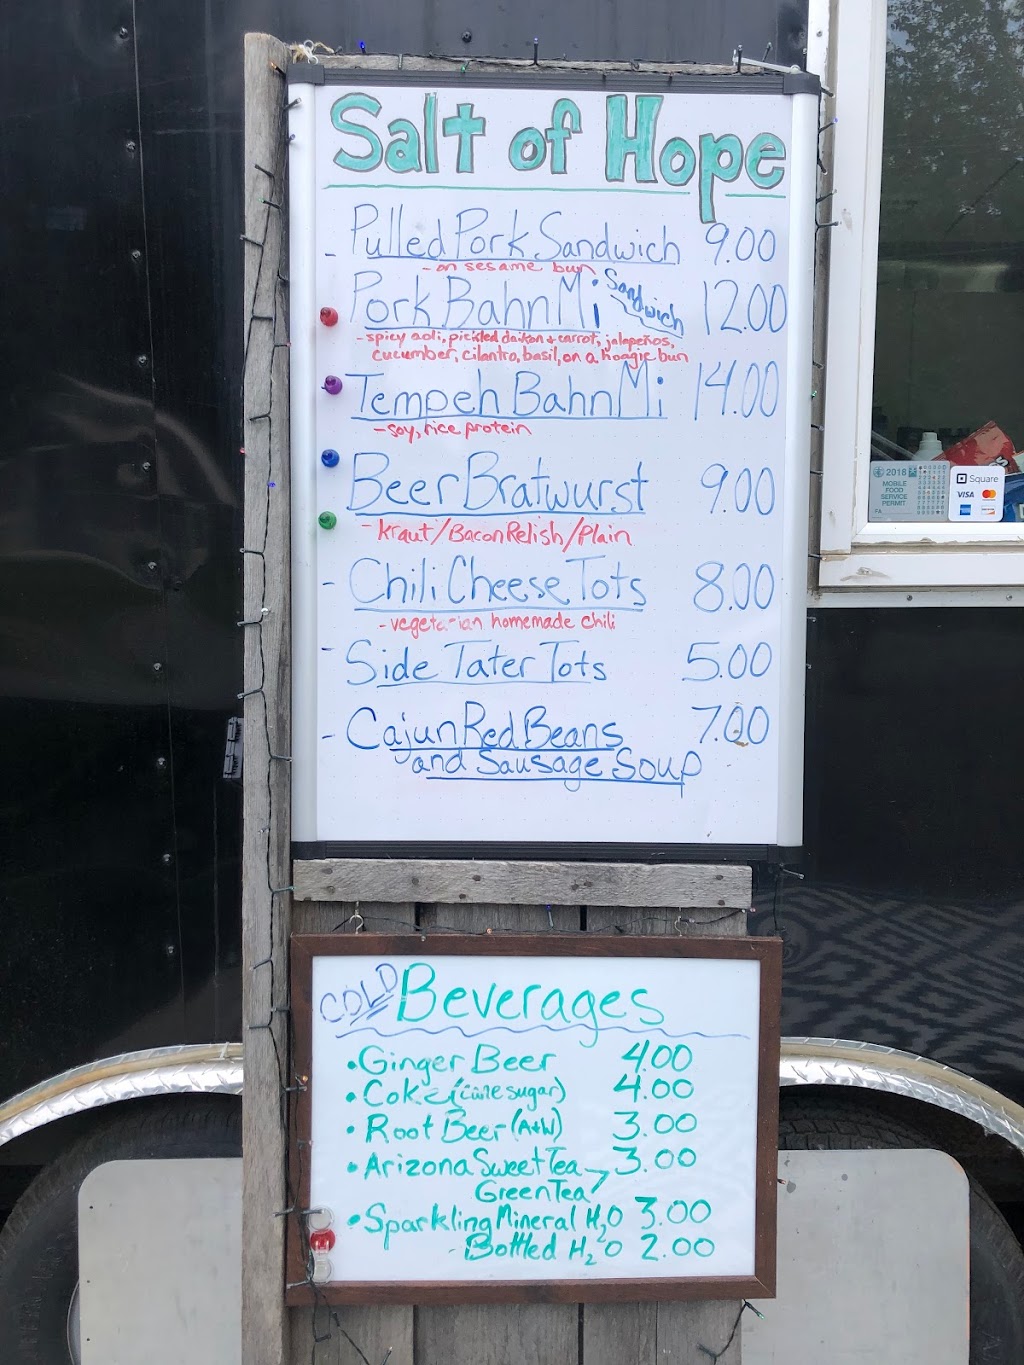 Salt of Hope
- Pulled Pork Sandwich 9.00
- on sesame bun
Pork Bahn Mi Sandwich 12.00
- spicy aoli, pickled daikon + carrot, jalapeños,
cucumber, cilantro, basil, on a hoagie bun
Tempeh Bahn Mi 14.00
- soy, rice protein
Beer Bratwurst 9.00
- Kraut/Bacon Relish/Plain
- Chili Cheese Tots 8.00
- vegetarian homemade chili
- Side Tater Tots 5.00
- Cajun Red Beans 7.00
and Sausage Soup
COLD Beverages
• Ginger Beer 4.00
• Coke (cane sugar) 4.00
• Root Beer (A+W) 3.00
• Arizona Sweet Tea 3.00
Green Tea
• Sparkling Mineral H2O 3.00
- Bottled H2O 2.00
2018
MOBILE
FOOD
SERVICE
PERMIT
Square
VISA